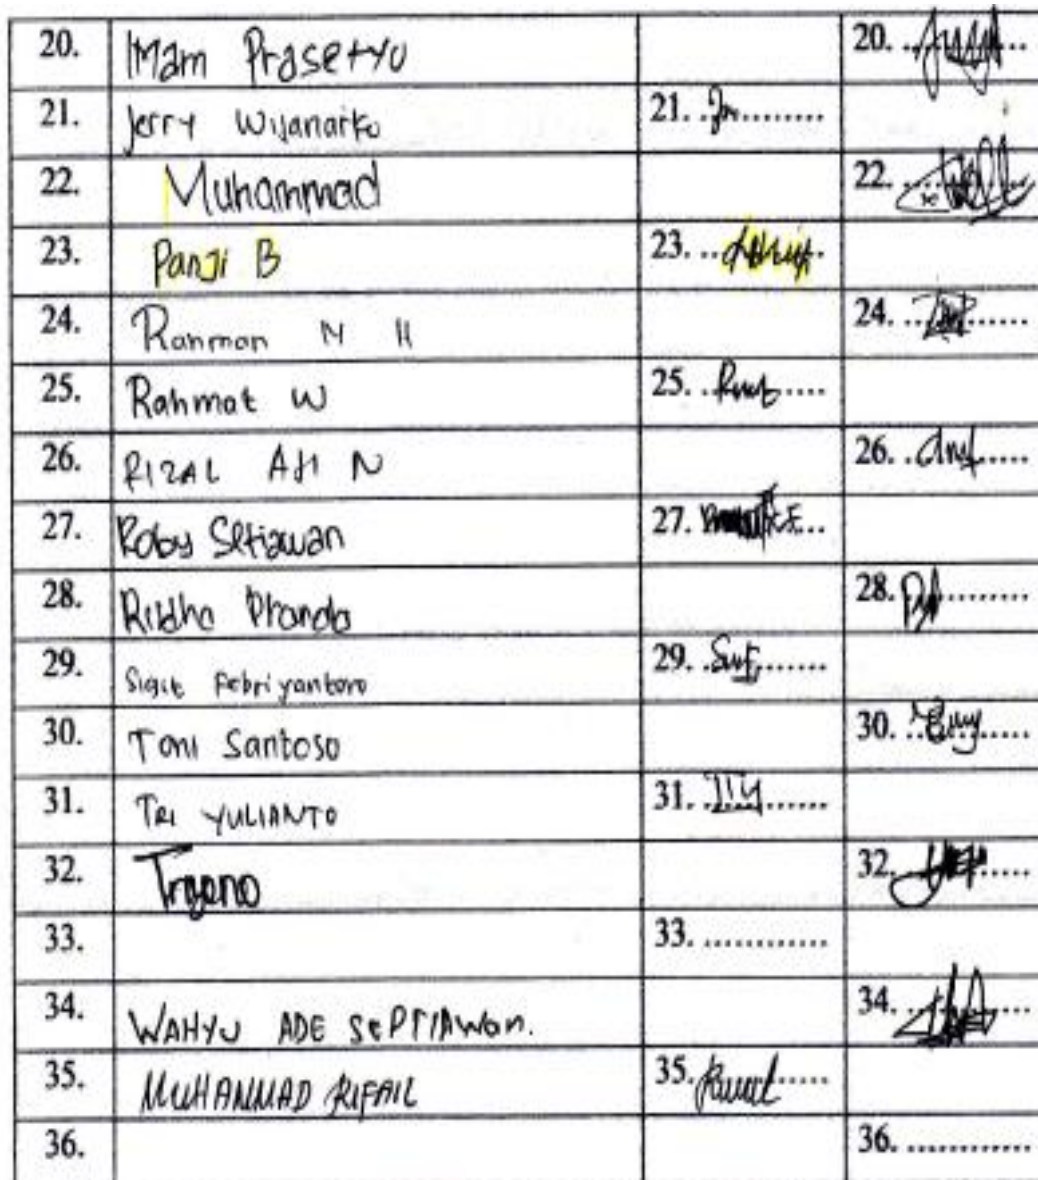 20. Imam Prasetyo 20.
21. Jerry Wijanarko 21.
22. Muhammad 22.
23. Panji B 23.
24. Rahman N H 24.
25. Rahmat W 25.
26. RIZAL AJI N 26.
27. Roby Setiawan 27.
28. Ridho 28.
29. Sigit Febriyantoro 29.
30. Toni Santoso 30.
31. TRI YULIANTO 31.
32. Triyono 32.
33. 33. ............
34. WAHYU ADE SEPTIAWAN. 34.
35. MUHAMMAD RIFAIL 35.
36. 36. ............